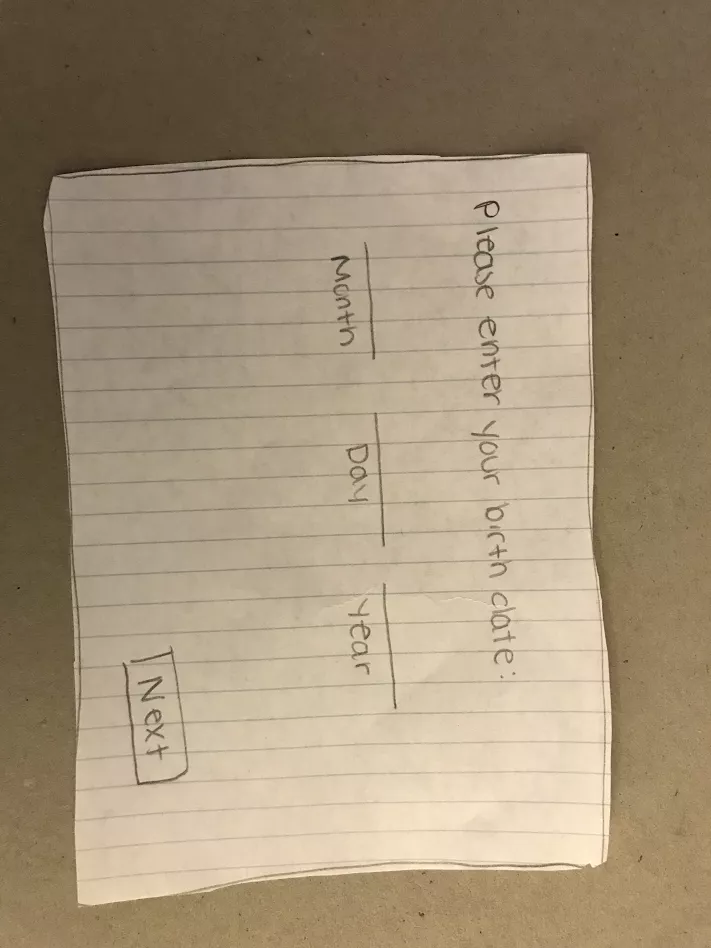 Please enter your birth date:
Month Day Year
Next